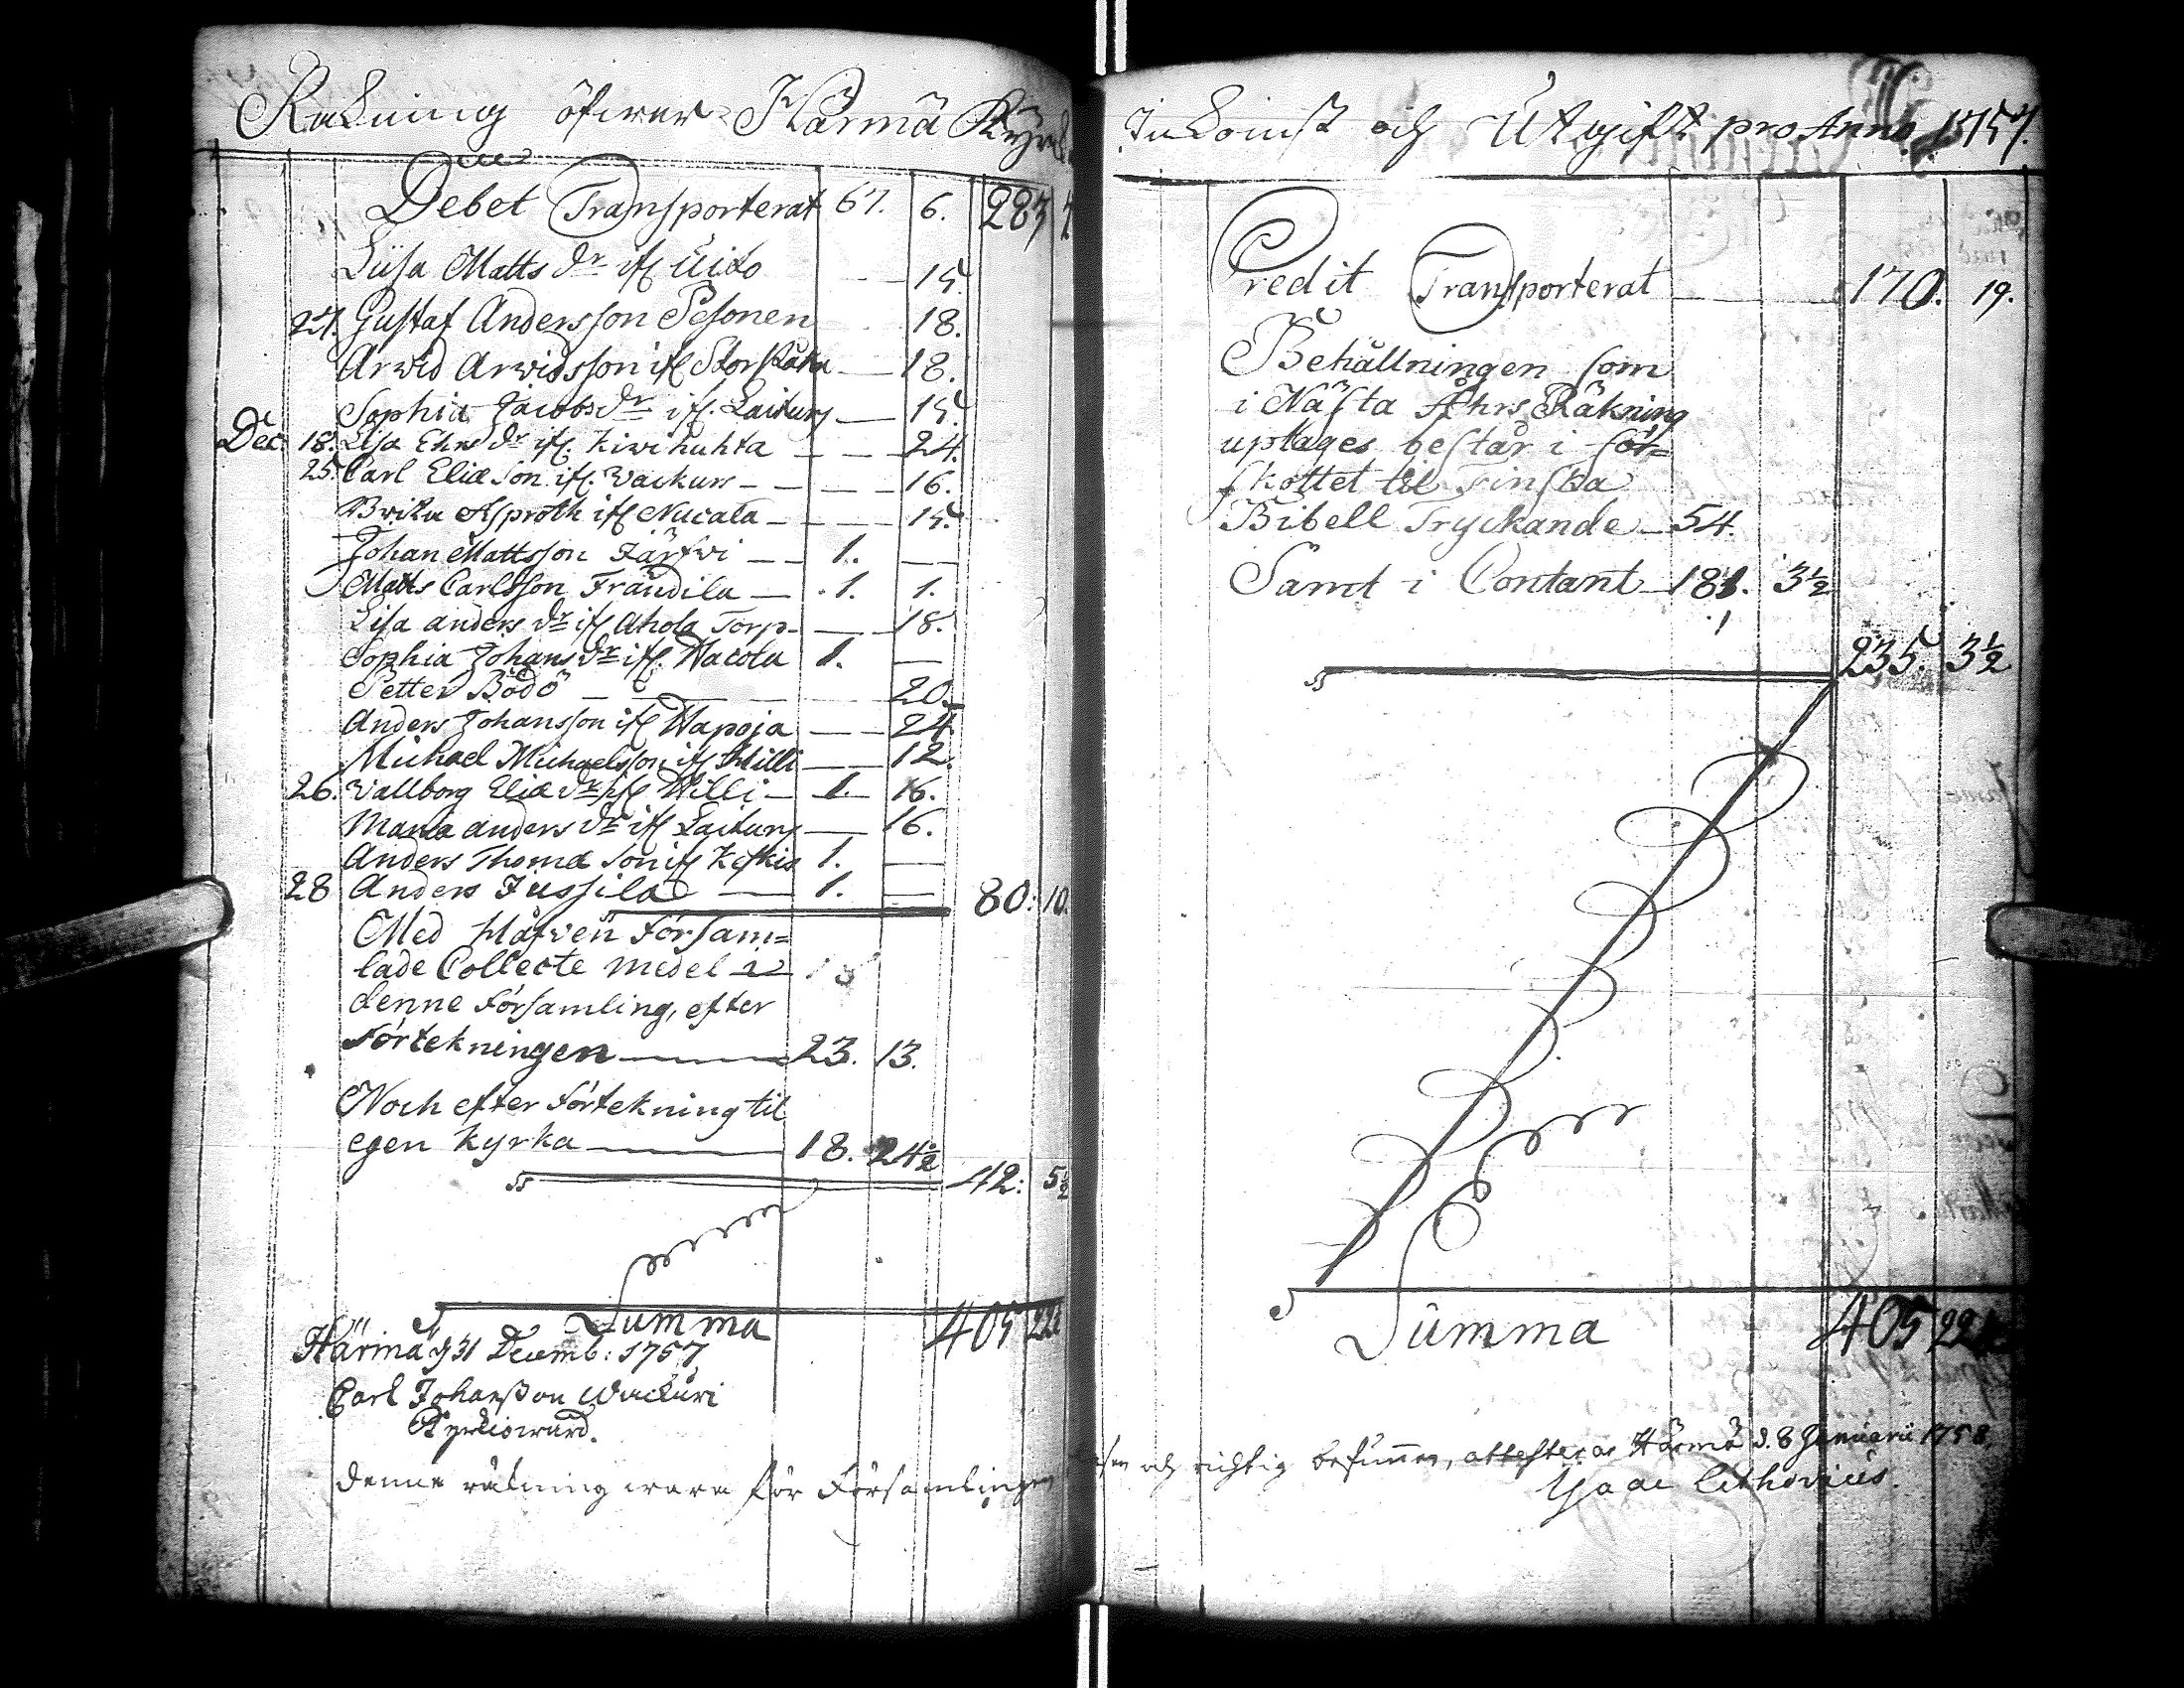 Räkning öfwer Härmä Kyrck
Debet Transporterat 67. 6. 283
Lisa Matts dr ifr. Uito — 15.
27. Gustaf Andersson Pesonen 18.
Arwid Arwidsson ifr. — 18.
Sophia Jacobs dr ifr. — 15.
Dec: 18. Lisa Ehrs dr ifr. Kiwihuhta — — 24.
25. Carl Eliæ Son ifr. — — — 16.
Brita Asproth ifr. Nucala — — — 15.
Johan Mattsson Järfwi — — 1. —
Matts Carlsson Frändila — 1. 1.
Lisa anders dr ifr. Ahola Torp — — 18.
Sophia Johans dr ifr. Wacola 1. —
Petter Bodö — — 20.
Anders Johansson ifr. Wapoja — — 24.
Michael Michaelsson ifr. — — 12.
26. Wallborg Eliæ dr ifr. Willi — 1. 16.
Maria anders dr ifr. — 16.
Anders Thomæ Son ifr. 1. —
28 Anders Jussila — 1. — 80: 10.
Med Håfven Försam=
lade Collecte medel
denne Församling, efter
Förtekningen — 23. 13.
Noch efter Förtekning til
egen Kyrka — 18. 24½
42: 5½
Summa 405 22½
Härmä d 31 Decemb: 1757
Carl Johansson Wackuri
Kyrkioward.
denne räkning wara för Församlingen
Inkomst och Utgift pro Anno 1757.
Credit Transporterat — 170. 19.
Behållningen som
i Nästa Åhrs Räkning
uptages bestär i för=
skottet til Finska
Bibell Tryckande — 54.
Samt i Contant — 181. 3½
235. 3½
Summa 405 22½
och richtig befunnen, attesteras Härmä d. 8 Januarii 1758.
Isaac Lithovius.